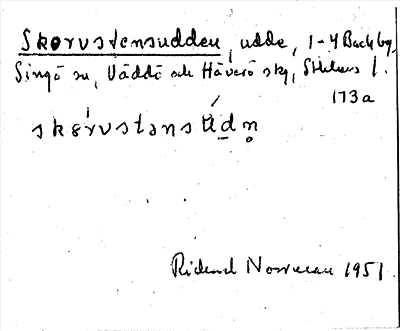 Skorvstensudden, udde, 1-4 Backby,
Singö sn, Väddö och Häverö skg, Sthlms l.
173a
skørvstənsʉdn̥
Richard Norrman 1951